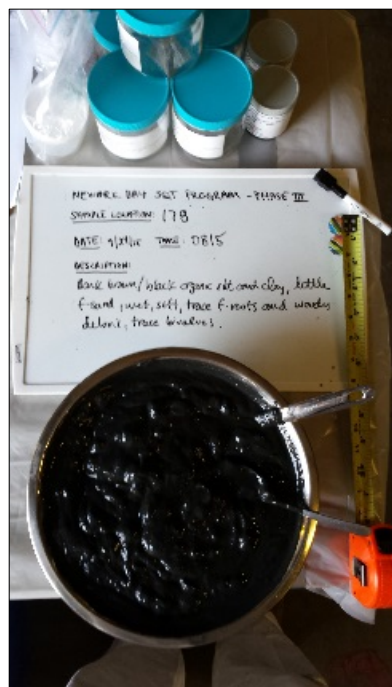 NEWARK BAY SQT PROGRAM - PHASE III
SAMPLE LOCATION: 17B
DATE: TIME: 0815
DESCRIPTION:
Dark brown/black organic silt and clay, little
f-sand, wet, soft, trace f-roots and woody
debris, trace bivalves.